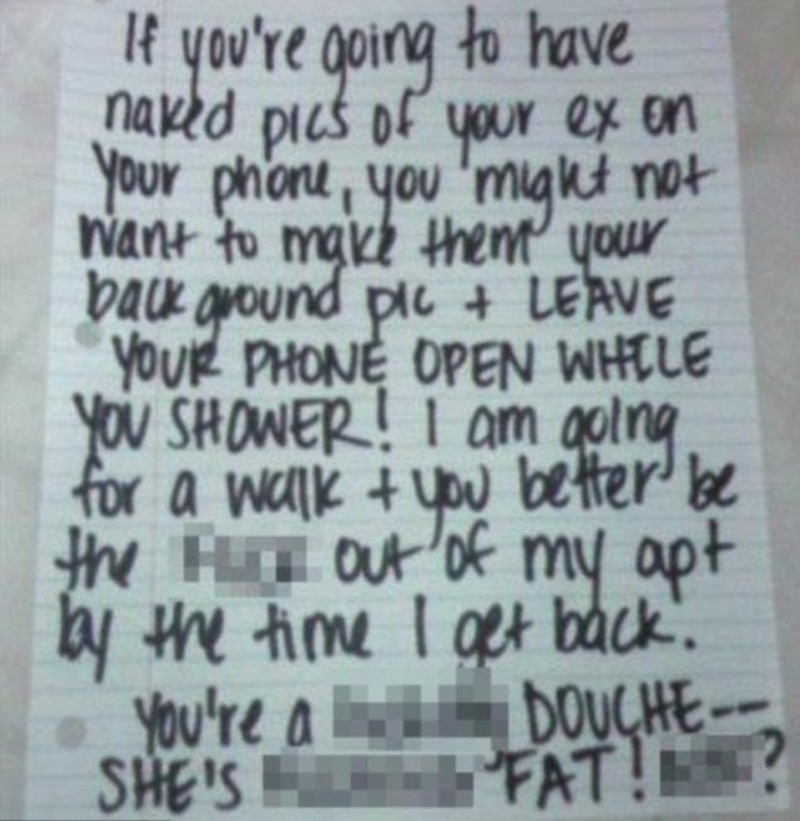 If you're going to have
naked pics of your ex on
Your phone, you might not
want to make them your
background pic + LEAVE
YOUR PHONE OPEN WHILE
YOU SHOWER! I am going
for a walk + you better be
the out of my apt
by the time I get back.
You're a DOUCHE--
SHE'S FAT! ?